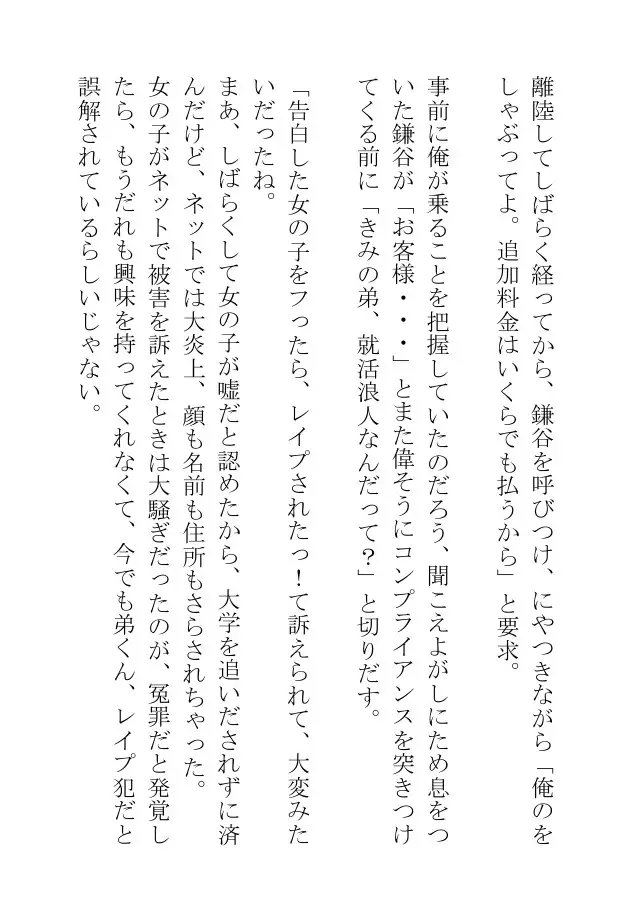 離陸してしばらく経ってから、鎌谷を呼びつけ、にやつきながら「俺のを
しゃぶってよ。追加料金はいくらでも払うから」と要求。
事前に俺が乗ることを把握していたのだろう、聞こえよがしにため息をつ
いた鎌谷が「お客様・・・」とまた偉そうにコンプライアンスを突きつけ
てくる前に「きみの弟、就活浪人なんだって？」と切りだす。
「告白した女の子をフったら、レイプされたっ！て訴えられて、大変みた
いだったね。
まあ、しばらくして女の子が嘘だと認めたから、大学を追いだされずに済
んだけど、ネットでは大炎上、顔も名前も住所もさらされちゃった。
女の子がネットで被害を訴えたときは大騒ぎだったのが、冤罪だと発覚し
たら、もうだれも興味を持ってくれなくて、今でも弟くん、レイプ犯だと
誤解されているらしいじゃない。